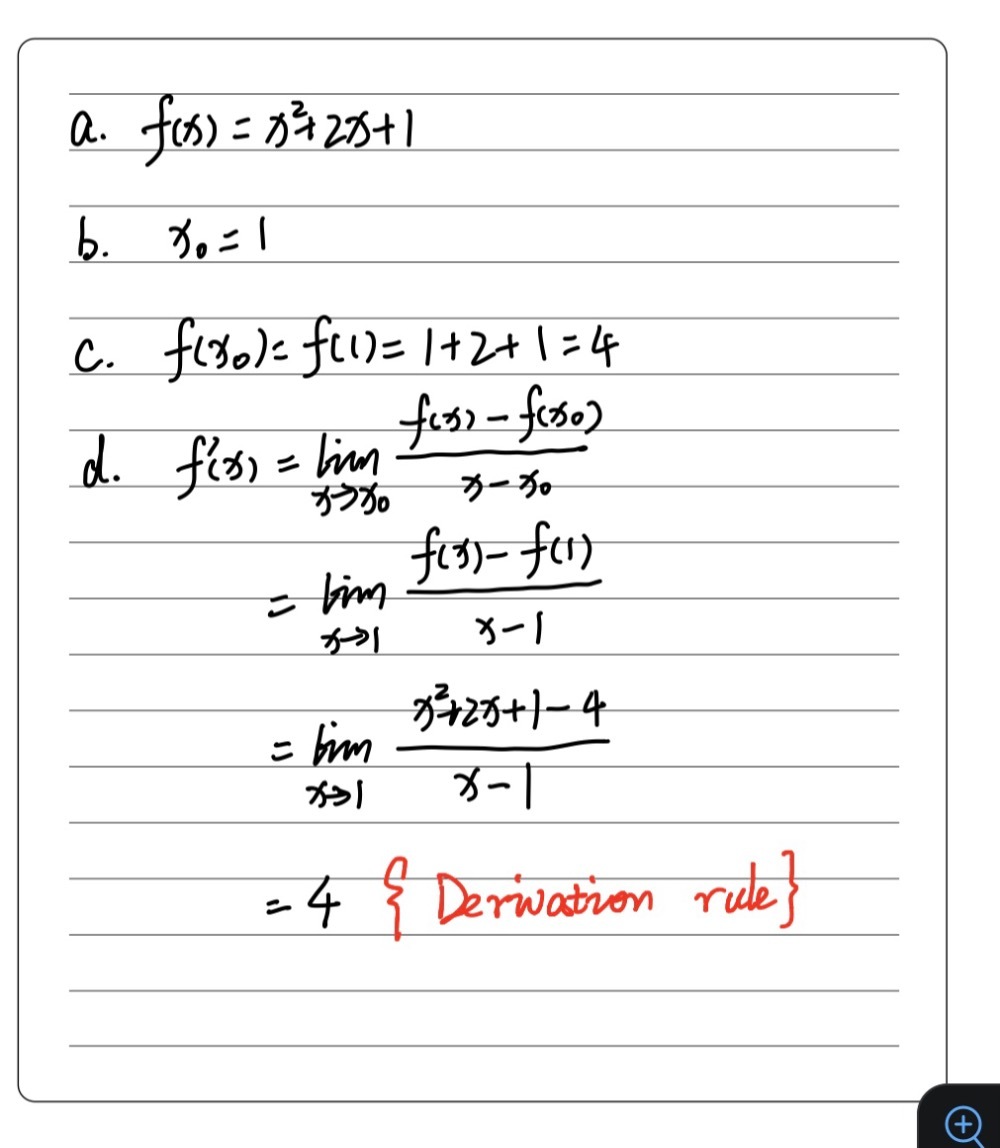 a. f(x) = x²+2x+1
b. x₀ = 1
c. f(x₀) = f(1) = 1+2+1 = 4
d. f'(x) = lim x→x₀ (f(x) − f(x₀)) / (x − x₀)
= lim x→1 (f(x) − f(1)) / (x − 1)
= lim x→1 (x²+2x+1−4) / (x − 1)
= 4 { Derivation rule}